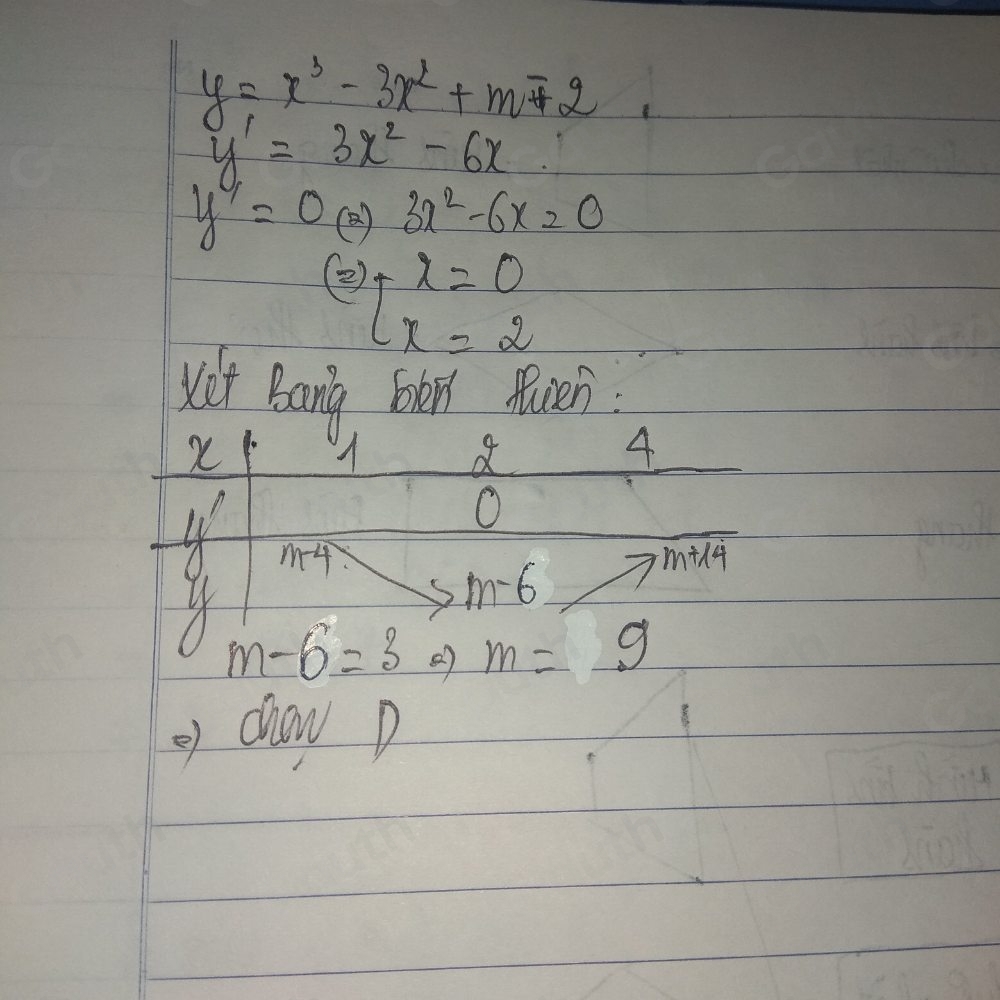 y = x³ - 3x² + m - 2
y' = 3x² - 6x.
y' = 0 (=) 3x² - 6x = 0
(=) [ x = 0
x = 2
Xét Bảng biến thiên:
x 1 2 4
y' 0
y m-4 m-6 m+14
m-6 = 3 => m = 9
=> chọn D